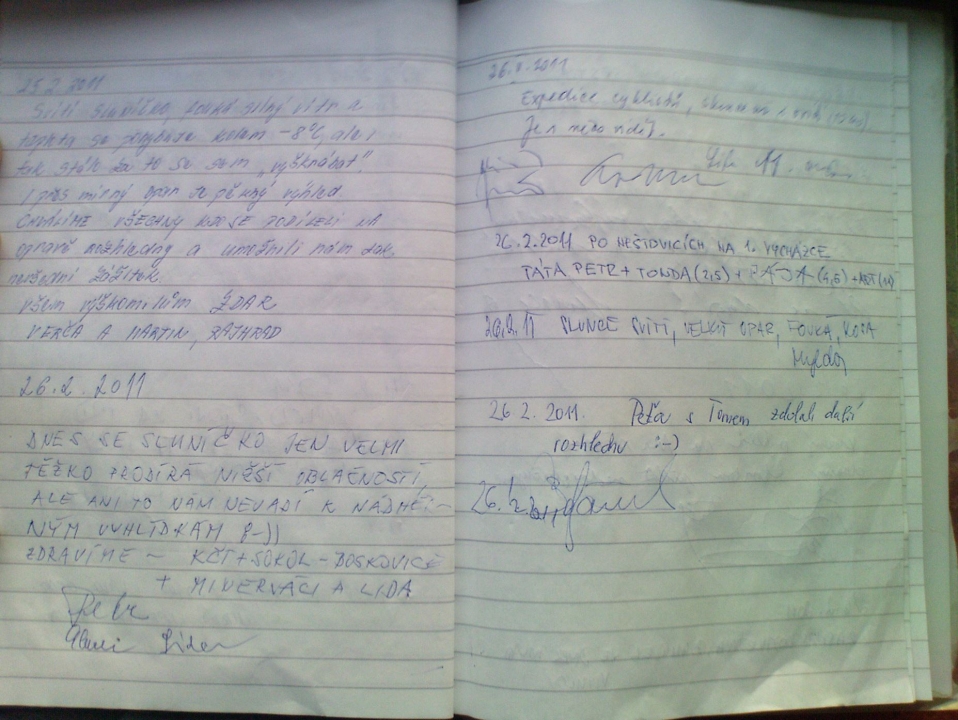 25.2.2011
Svítí sluníčko, fouká silný vítr a
teplota se pohybuje kolem -8°C, ale i
tak stálo za to se sem „vyškrábat".
I přes mírný opar je pěkný výhled.
CHVÁLÍME VŠECHNY KDO SE PODÍLELI NA
opravě rozhledny a umožnili nám tak
nevšední zážitek.
všem výškomilům ZDAR
VERČA A MARTIN, RAJHRAD
26.2.2011
DNES SE SLUNÍČKO JEN VELMI
TĚŽKO PRODÍRÁ NIŽŠÍ OBLAČNOSTÍ,
ALE ANI TO NÁM NEVADÍ K NÁDHER-
NÝM VYHLÍDKÁM 8-))
ZDRAVÍME - KČT+SOKOL-BOSKOVICE
+ MINERVÁCI A LIDA
Petr
26.2.2011
Expedice cyklistů,
Je nízko vidět.
26.2.2011 PO NEŠTOVICÍCH NA 1. VYCHÁZCE
TÁTA PETR + TONDA (2,5) + (4,5) +
26.2.11 SLUNCE SVÍTÍ, VELKÝ OPAR, FOUKÁ, KOSA
26.2.2011. Peťa s Tomem zdolali další
rozhlednu :-)
26.2.2011